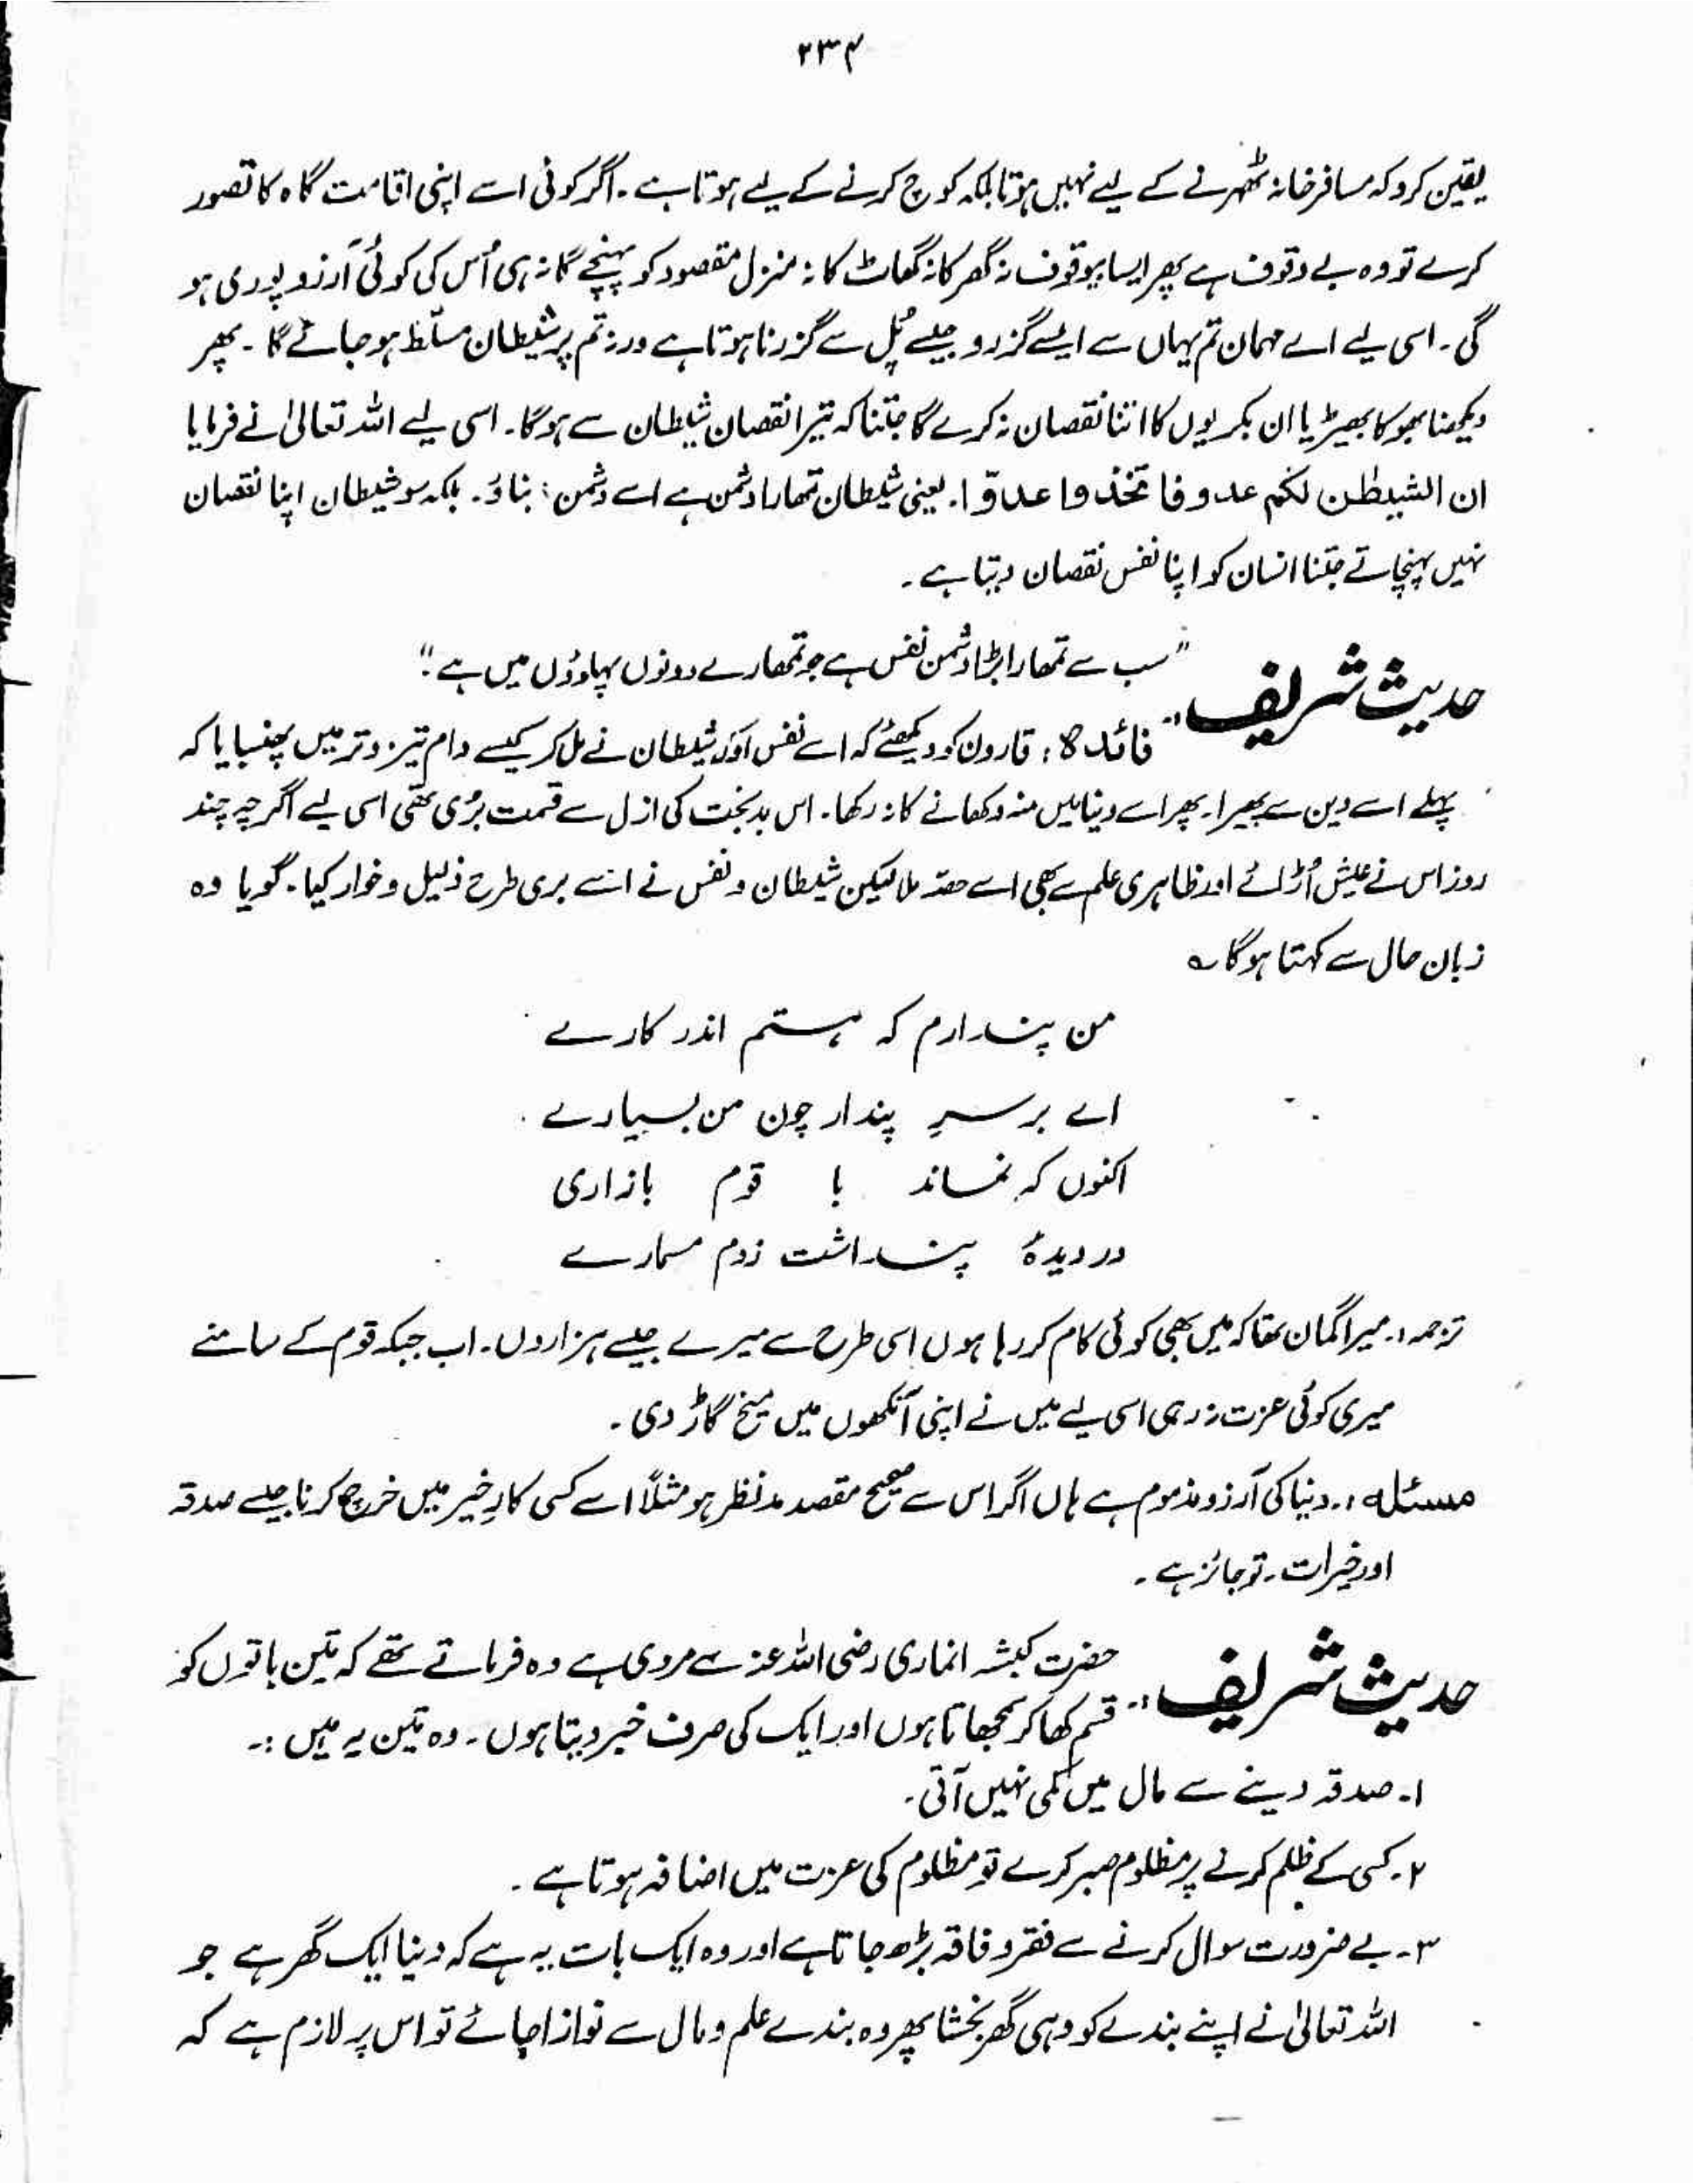 ۲۳۴
یقین کرو کہ مسافر خانہ ٹھہرنے کے لیے نہیں ہوتا بلکہ کوچ کرنے کے لیے ہوتا ہے۔ اگر کوئی اسے اپنی اقامت گاہ کا تصور
کرے تو وہ بے وقوف ہے پھر ایسا بیوقوف نہ گھر کا نہ گھاٹ کا نہ منزل مقصود کو پہنچے گا نہ ہی اُس کی کوئی آرزو پوری ہو
گی۔ اسی لیے اے مہمان تم یہاں سے ایسے گزرو جیسے پُل سے گزرنا ہوتا ہے ورنہ تم پر شیطان مسلّط ہو جائے گا۔ پھر
دیکھنا بھوکا بھیڑیا ان بکریوں کا اتنا نقصان نہ کرے گا جتنا کہ تیرا نقصان شیطان سے ہوگا۔ اسی لیے اللہ تعالیٰ نے فرمایا
ان الشیطٰن لکم عدو فاتخذوا عدوّا۔ یعنی شیطان تمھارا دشمن ہے اسے دشمن بناؤ۔ بلکہ سو شیطان اپنا نقصان
نہیں پہنچاتے جتنا انسان کو اپنا نفس نقصان دیتا ہے۔
حدیث شریف: "سب سے تمھارا بڑا دشمن نفس ہے جو تمھارے دونوں پہلوؤں میں ہے"
فائدہ: قارون کو دیکھئے کہ اسے نفس اور شیطان نے مل کر کیسے دام تیز و تر میں پھنسایا کہ
پہلے اسے دین سے پھیرا۔ پھر اسے دنیا میں منہ دکھانے کا نہ رکھا۔ اس بدبخت کی ازل سے قسمت بُری تھی اسی لیے اگرچہ چند
روز اس نے عیش اُڑائے اور ظاہری علم سے بھی اسے حصہ ملا لیکن شیطان و نفس نے اسے بری طرح ذلیل و خوار کیا۔ گویا وہ
زبان حال سے کہتا ہوگا ؎
من پندارم کہ ہستم اندر کارے
اے برسرِ پندار چون من بسیارے
اکنوں کہ نماند با قوم بازاری
در دیدۂ پنداشت زدم مسمارے
ترجمہ:۔ میرا گمان تھا کہ میں بھی کوئی کام کر رہا ہوں اسی طرح سے میرے جیسے ہزاروں۔ اب جبکہ قوم کے سامنے
میری کوئی عزت نہ رہی اسی لیے میں نے اپنی آنکھوں میں میخ گاڑ دی۔
مسئلہ:۔ دنیا کی آرزو مذموم ہے ہاں اگر اس سے صحیح مقصد مدنظر ہو مثلاً اسے کسی کارِ خیر میں خرچ کرنا جیسے صدقہ
اور خیرات۔ تو جائز ہے۔
حدیث شریف: حضرت کبشہ انماری رضی اللہ عنہ سے مروی ہے وہ فرماتے تھے کہ تین باتوں کو
قسم کھا کر سمجھاتا ہوں اور ایک کی صرف خبر دیتا ہوں۔ وہ تین یہ ہیں :۔
۱۔ صدقہ دینے سے مال میں کمی نہیں آتی۔
۲۔ کسی کے ظلم کرنے پر مظلوم صبر کرے تو مظلوم کی عزت میں اضافہ ہوتا ہے۔
۳۔ بے ضرورت سوال کرنے سے فقر و فاقہ بڑھ جاتا ہے اور وہ ایک بات یہ ہے کہ دینا ایک گھر ہے جو
اللہ تعالیٰ نے اپنے بندے کو وہی گھر بخشا پھر وہ بندے علم و مال سے نوازا جائے تو اس پر لازم ہے کہ